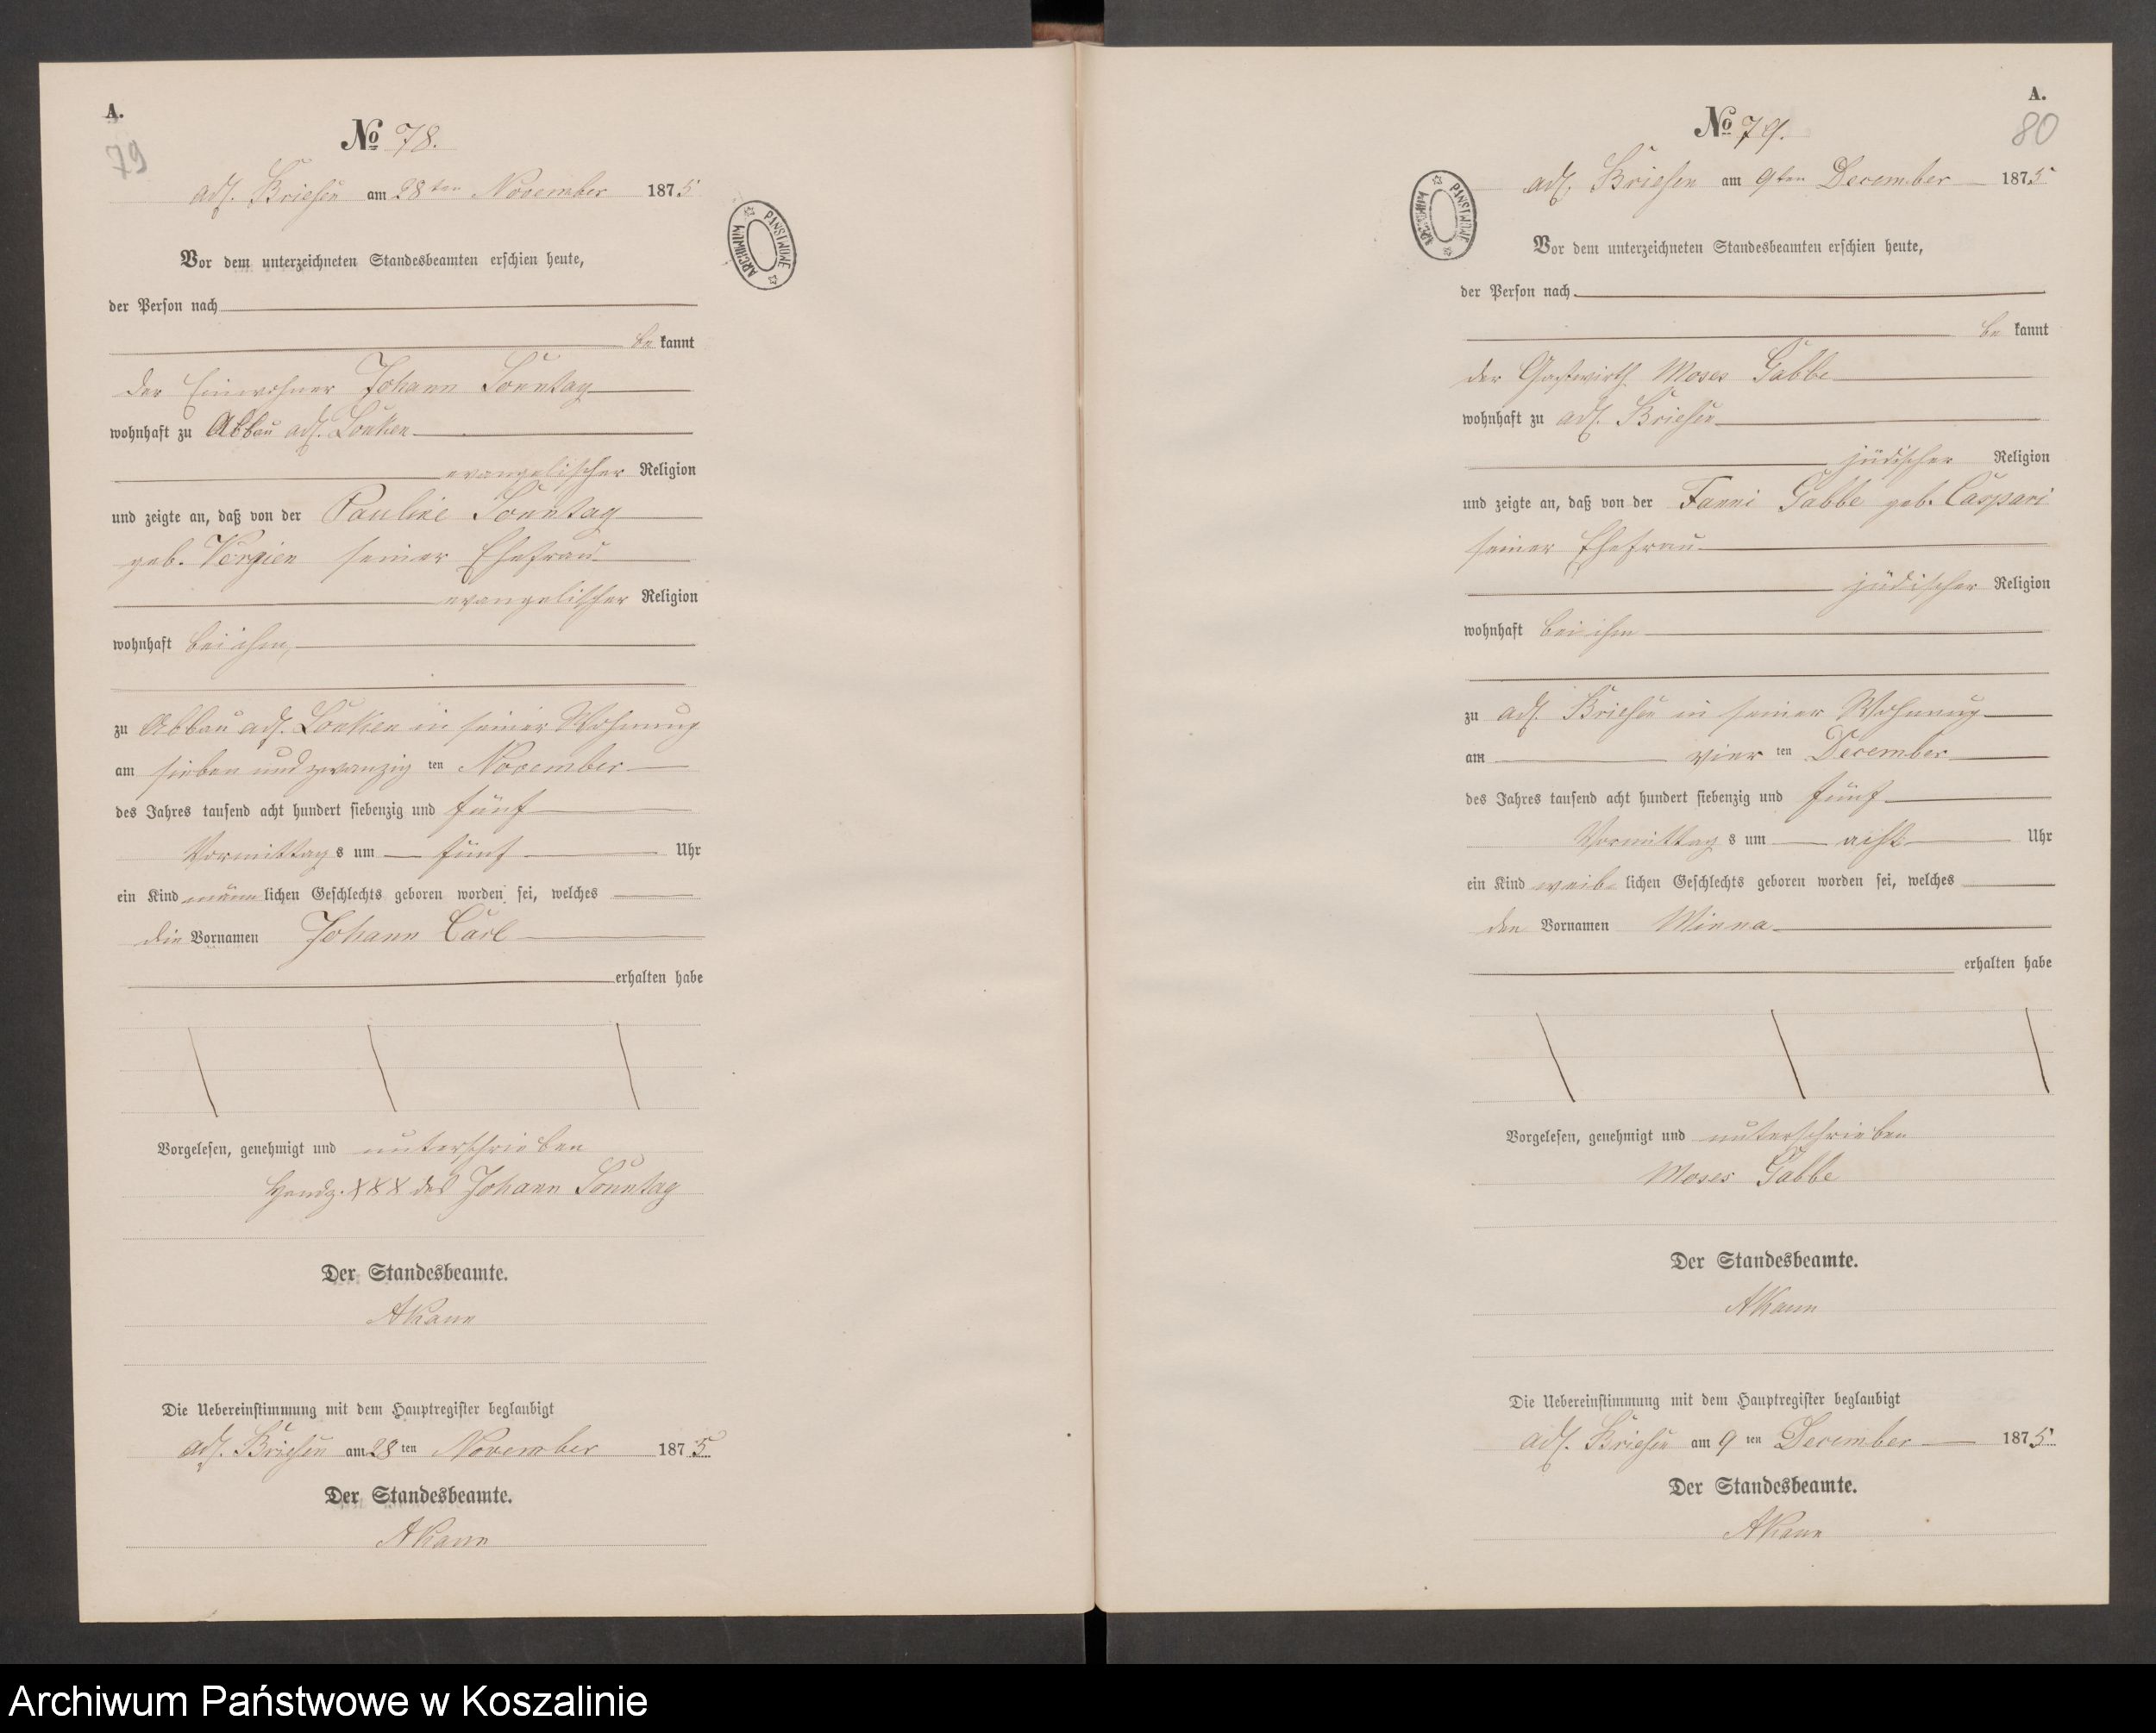 A.
79
No 78.
adl. Briesen am 28ten November 1875
ARCHIWUM PAŃSTWOWE
Vor dem unterzeichneten Standesbeamten erschien heute,
der Person nach
be kannt
der Einwohner Johann Sonntag
wohnhaft zu Abbau adl. Lonken
evangelischer Religion
und zeigte an, daß von der Pauline Sonntag
geb. Vergien seiner Ehefrau
evangelischer Religion
wohnhaft bei ihm,
zu Abbau adl. Lonken in seiner Wohnung
am sieben und zwanzig ten November
des Jahres tausend acht hundert siebenzig und fünf
Vormittag s um fünf Uhr
ein Kind männ lichen Geschlechts geboren worden sei, welches
die Vornamen Johann Carl
erhalten habe
Vorgelesen, genehmigt und unterschrieben
Handz. XXX des Johann Sonntag
Der Standesbeamte.
AKann
Die Uebereinstimmung mit dem Hauptregister beglaubigt
adl. Briesen am 28 ten November 1875
Der Standesbeamte.
AKann
A.
80
No 79.
adl. Briesen am 9ten December 1875
ARCHIWUM PAŃSTWOWE
Vor dem unterzeichneten Standesbeamten erschien heute,
der Person nach
be kannt
der Gastwirth Moses Gabbe
wohnhaft zu adl. Briesen
jüdischer Religion
und zeigte an, daß von der Fanni Gabbe geb. Caspari
seiner Ehefrau
jüdischer Religion
wohnhaft bei ihm
zu adl. Briesen in seiner Wohnung
am vier ten December
des Jahres tausend acht hundert siebenzig und fünf
Vormittag s um acht Uhr
ein Kind weib lichen Geschlechts geboren worden sei, welches
den Vornamen Minna
erhalten habe
Vorgelesen, genehmigt und unterschrieben
Moses Gabbe
Der Standesbeamte.
AKann
Die Uebereinstimmung mit dem Hauptregister beglaubigt
adl. Briesen am 9 ten December 1875
Der Standesbeamte.
AKann
Archiwum Państwowe w Koszalinie